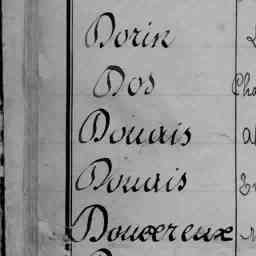 Dorin
Dos
Douais
Douais
Doucereux